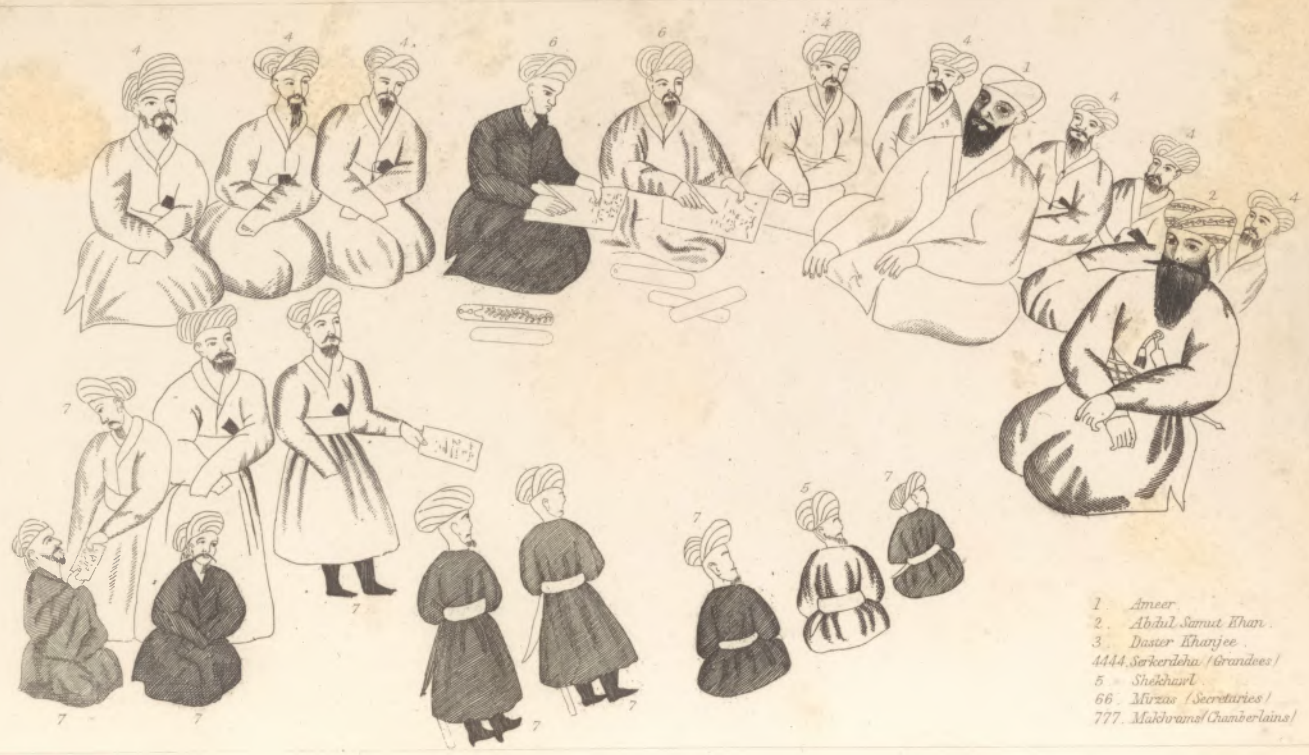 4 4 4 6 6 4 4 1 4 4 2 4
7
7 5 7
7
7 7 7 7
1 Ameer.
2. Abdul Samut Khan.
3. Daster Khanjee.
4444. Serkerdeha (Grandees)
5 Shekhawl.
66. Mirzas (Secretaries)
777. Makhrams (Chamberlains)